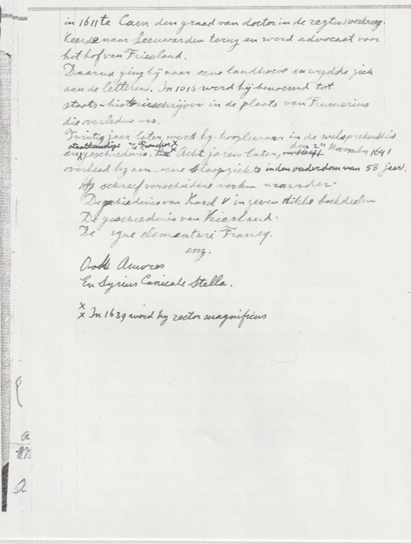 in 1611 te Caen den graad van doctor in de regten verkreeg.
Keerde naar Leeuwarden terug en word advocaat voor
het hof van Friesland.
Daarna ging hij naar eene landhoeve en wydde zich
aan de letteren. In 1616 werd hij benoemd tot
staats-historieschrijver in de plaats van Furmerius
die overleden was.
Twintig jaar later werd hy hoogleeraar in de welsprekendheid
staatkundige te Franeker x den 2n November 1641
en geschiedenis. Acht jaren later,
overleed hy aan eene slaapziekte in den ouderdom van 58 jaar.
Hy schreef verscheidene werken waaronder
De geschiedenis van Karel V in zeven dikke boekdeelen
De geschiedenis van Vriesland.
De clementarí Francq.
enz.
Ook Amores
En Syrius Canicale Stella.
x
x In 1639 word hy rector magnificus